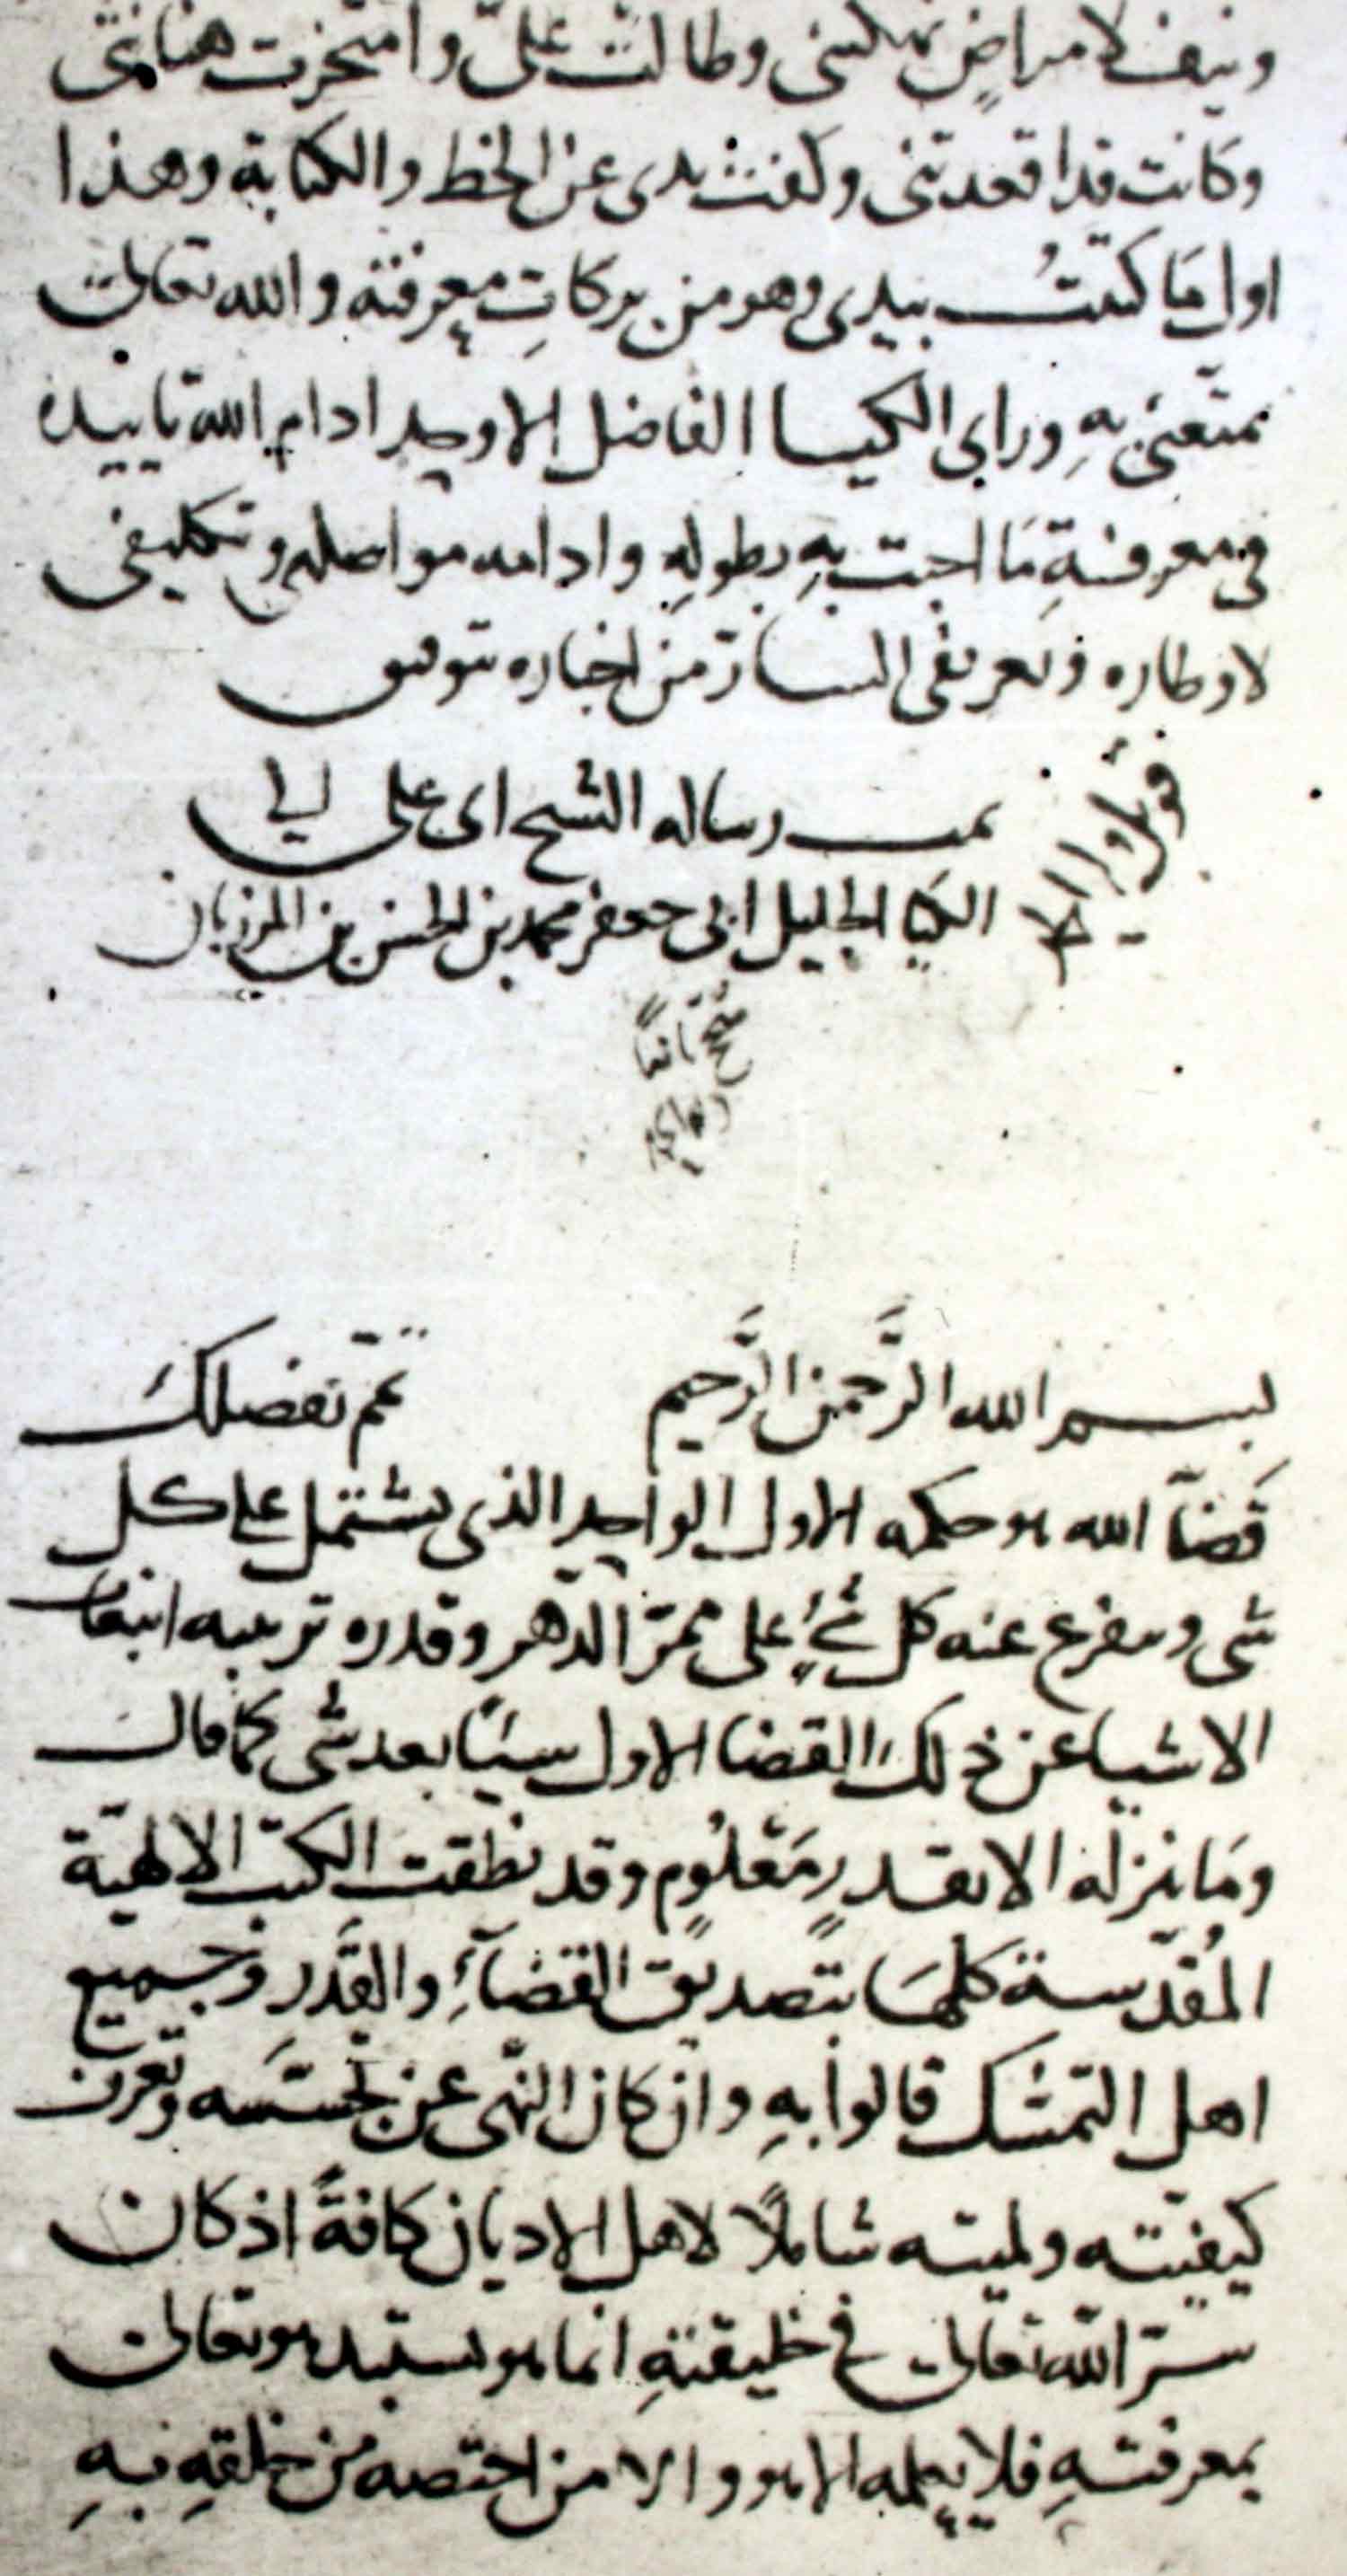 ونيف لامراضٍ نهكتنى وطالت علىّ وامتحنت
وكانت قد اقعدتنى وكفت يدى عن الخط والكتابة وهذا
اول مَا كتبتُ بيدى وهو من بركاتِ معرفته والله تعالى
يمتّعنى بهِ وراى الكيا الفاضل الاوحد ادام الله تاييده
فى معرفةِ مَا اجبت بهِ بطولهِ وادامه مواصلتى وتكليفى
لاوطاره وتعريفى السارّ من اخباره موفق
تمت رساله الشيخ ابى على الى
الكيا الجليل ابى جعفر محمد بن الحسن بن المرزبان
بسم الله الرَّحمن الرَّحيم تمّم بفضلكَ
قَضآ الله هو حكمه الاول الواحد الذى يشتمل على كل
شى ويتفرع عنه كل شئٍ على ممرّ الدّهر وقدره ترتيبه انبعاث
الاشيا عن ذلك القضا الاول شيئًا بعد شى كما قال
ومَا ننزله الا بقدرٍ مَعْلُومٍ وقد نطقت الكتب الالهيّة
المُقدّسة كلهَا بتصديق القضآءِ والقَدَر وجميع
اهل التمسّك قالوا بهِ وان كان النهى عن تحسّسه وتعرف
كيفيّته ولميته شاملًا لاهل الاديان كافةً اذ كان
سرّ الله تعالى فى خليقتهِ انما هو يستبد هو تعالى
بمعرفتهِ فلا يعلمه الا هو والا من اختصه من خلقهِ بهِ